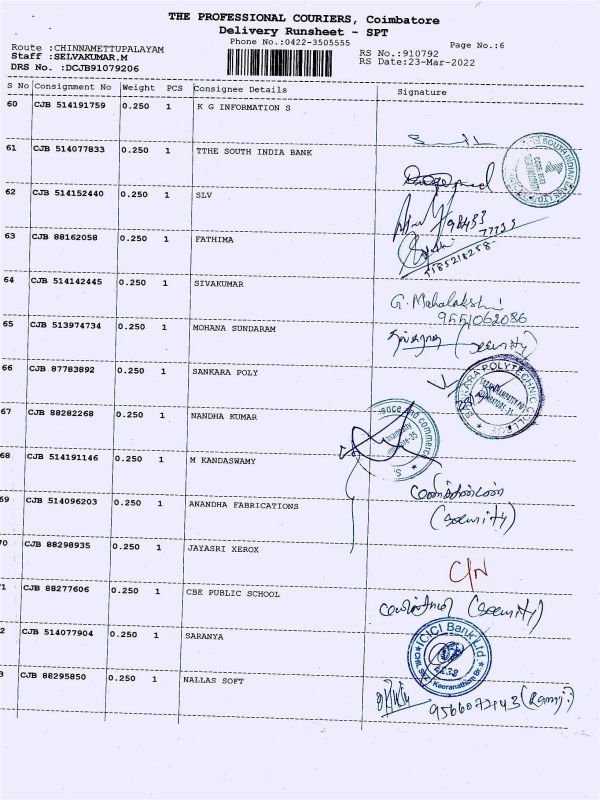 THE PROFESSIONAL COURIERS, Coimbatore
Delivery Runsheet - SPT
Phone No.:0422-3505555
Page No.:6
Route :CHINNAMETTUPALAYAM
RS No.:910792
Staff :SELVAKUMAR.M
RS Date:23-Mar-2022
DRS No. :DCJB91079206
S No Consignment No Weight PCS Consignee Details Signature
60 CJB 514191759 0.250 1 K G INFORMATION S
61 CJB 514077833 0.250 1 TTHE SOUTH INDIA BANK
62 CJB 514152440 0.250 1 SLV
63 CJB 88162058 0.250 1 FATHIMA
64 CJB 514142445 0.250 1 SIVAKUMAR
G. Mahalakshmi
9551062086
65 CJB 513974734 0.250 1 MOHANA SUNDARAM
(Security)
66 CJB 87783892 0.250 1 SANKARA POLY
SANKARA POLYTECHNIC COLLEGE
67 CJB 88282268 0.250 1 NANDHA KUMAR
68 CJB 514191146 0.250 1 M KANDASWAMY
69 CJB 514096203 0.250 1 ANANDHA FABRICATIONS
(Security)
70 CJB 88298935 0.250 1 JAYASRI XEROX
C/N
1 CJB 88277606 0.250 1 CBE PUBLIC SCHOOL
(Security)
2 CJB 514077904 0.250 1 SARANYA
ICICI Bank Ltd
3 CJB 88295850 0.250 1 NALLAS SOFT
9566072143